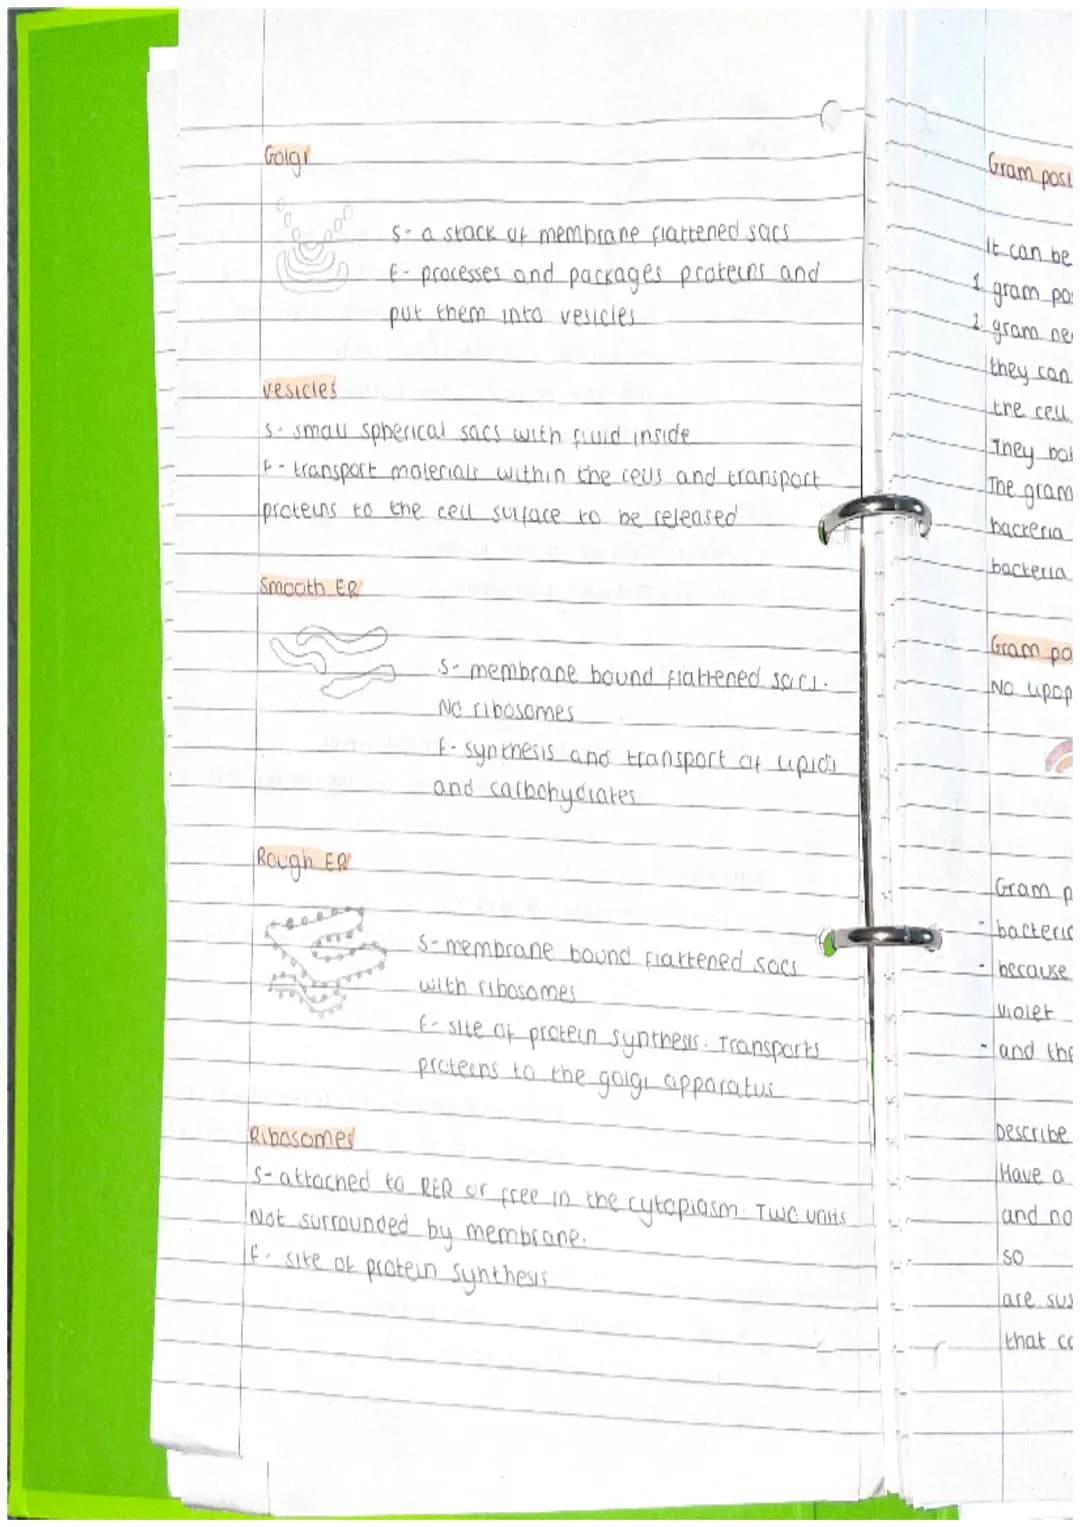 Golgi
S- a stack of membrane flattened sacs
F- processes and packages proteins and
put them into vesicles
vesicles
S- small spherical sacs with fluid inside
F- transport materials within the cells and transport
proteins to the cell surface to be released
Smooth ER
S- membrane bound flattened sacs.
No ribosomes
F- synthesis and transport of lipids
and carbohydrates
Rough ER
S- membrane bound flattened sacs
with ribosomes
F- site of protein synthesis. Transports
proteins to the golgi apparatus
Ribosomes
S- attached to RER or free in the cytoplasm. Two units
Not surrounded by membrane.
F- site of protein synthesis
Gram
It can be
1. gram
2. gram
they can
the cell
They
The gram
bacteria
bacteria
Gram
No
Gram
-
- because
violet
- and
Describe
Have a
and no
so
are
that